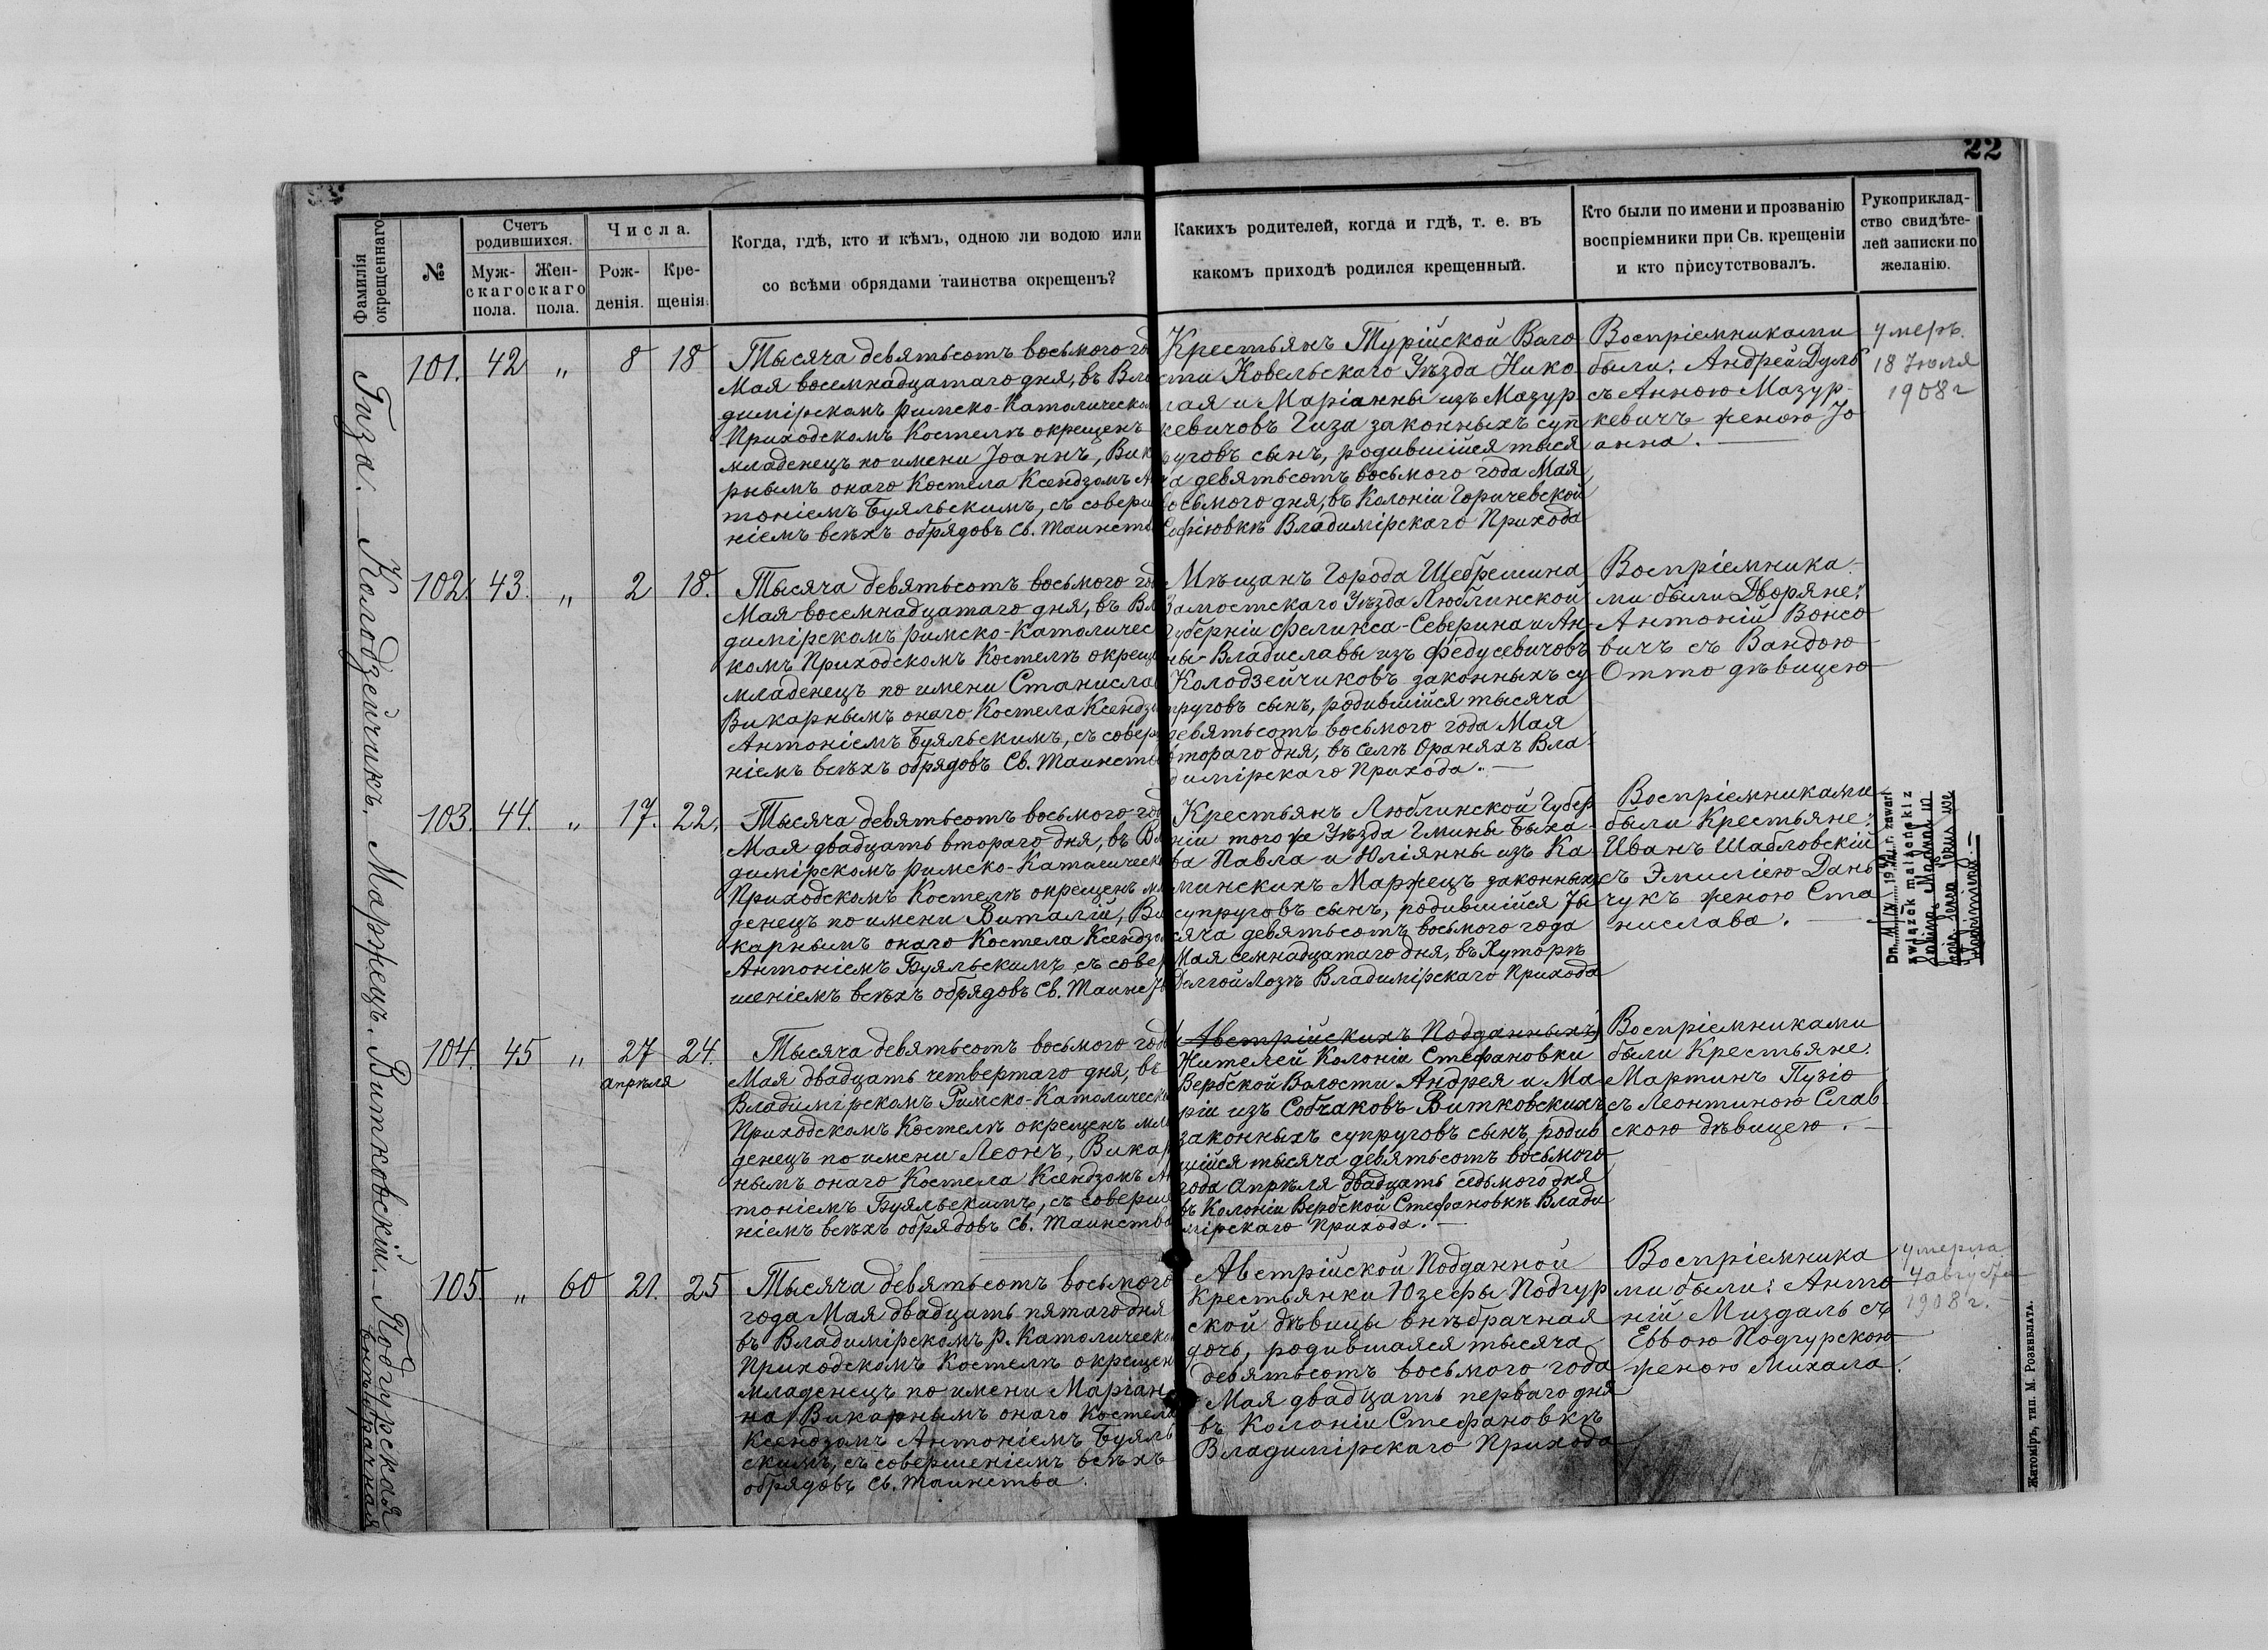 22
Фамилія
окрещеннаго
№
Счетъ
родившихся.
Муж-
скаго
пола.
Жен-
скаго
пола.
Числа.
Рож-
денія.
Кре-
щенія.
Когда, гдѣ, кто и кѣмъ, одною ли водою или
со всѣми обрядами таинства окрещенъ?
Какихъ родителей, когда и гдѣ, т. е. въ
какомъ приходѣ родился крещенный.
Кто были по имени и прозванію
воспріемники при Св. крещеніи
и кто присутствовалъ.
Рукоприклад-
ство свидѣте-
лей записки по
желанію.
Гиза.
101. 42 „ 8 18
Тысяча девятьсотъ восьмого го
Мая восемнадцатаго дня, въ Вла
димірскомъ римско-Католическом
Приходскомъ Костелѣ окрещенъ
младенецъ по имени Іоаннъ, Вик
рнымъ онаго Костела Ксендзомъ Ан
тоніемъ Буяльскимъ, съ соверш
ніемъ всѣхъ обрядовъ Св. Таинств
Крестьянъ Турійской Воло
сти Ковельскаго Уѣзда Нико
лая и Маріанны изъ Мазур
кевичовъ Гиза законныхъ суп
руговъ сынъ, родившійся тыся
ча девятьсотъ восьмого года Мая
восьмого дня, въ Колоніи Горичевской
Софіювкѣ Владимірскаго Прихода
Воспріемниками
были: Андрей Дуль
съ Анною Мазур-
кевичъ женою Іо
анна.
Умеръ.
18 Іюля
1908 г
Колодзейчикъ.
102. 43. „ 2 18.
Тысяча девятьсотъ восьмого го
Мая восемнадцатаго дня, въ Вла
димірскомъ римско-католичес
комъ Приходскомъ Костелѣ окрещ
младенецъ по имени Станисла
Викарнымъ онаго Костела Ксендз
Антоніемъ Буяльскимъ, съ совер
ніемъ всѣхъ обрядовъ Св. Таинст
Мѣщанъ Города Щебрешина
Замостскаго Уѣзда Люблинской
Губерніи Феликса-Северина и Ан-
ны-Владиславы изъ Федусевичовъ
Колодзейчиковъ законныхъ су-
пруговъ сынъ, родившійся тысяча
девятьсотъ восьмого года Мая
второго дня, въ селѣ Ораняхъ Вла-
димірскаго Прихода.
Воспріемника-
ми были Дворяне:
Антоній Вонсо
вичъ съ Вандою
Отто дѣвицею
Маржецъ.
103. 44. „ 17. 22.
Тысяча девятьсотъ восьмого го
Мая двадцать второго дня, въ Вла
димірскомъ римско-Католическ
Приходскомъ Костелѣ окрещенъ мл
денецъ по имени Виталій, Ви
карнымъ онаго Костела Ксендзо
Антоніемъ Буяльскимъ съ совер
шеніемъ всѣхъ обрядовъ Св. Таинс
Крестьянъ Люблинской Губер
ніи того же Уѣзда Гмины Быха-
ва Павла и Юліянны изъ Ка-
минскихъ Маржецъ законныхъ
супруговъ сынъ, родившійся ты
сяча девятьсотъ восьмого года
Мая семнадцатаго дня, въ Хуторѣ
Долгой Лозѣ Владимірскаго Прихода
Воспріемниками
были Крестьяне:
Иванъ Шабловскій
съ Эмиліею Дань
чукъ женою Ста
нислава.
zawarł
związek małżeński z
Витковскій.
104. 45 „ 27 24.
апрѣля
Тысяча девятьсотъ восьмого год
Мая двадцать четвертаго дня, въ
Владимірскомъ Римско-Католическ
Приходскомъ Костелѣ окрещенъ мл
денецъ по имени Леонъ, Викар
нымъ онаго Костела Ксендзомъ Ан
тоніемъ Буяльскимъ, съ соверш
ніемъ всѣхъ обрядовъ Св. Таинства
Австрійскихъ Подданныхъ
Жителей Колоніи Стефановки
Вербской Волости Андрея и Ма
ріи изъ Собчаковъ Витковскихъ
законныхъ супруговъ сынъ, родив
шійся тысяча девятьсотъ восьмого
года апрѣля двадцать седьмого дня
въ Колоніи Вербской Стефановкѣ Влади
мірскаго Прихода.
Воспріемниками
были Крестьяне:
Мартинъ Пузіо
съ Леонтиною Слав
скою дѣвицею.
Подгурская
внѣбрачная
105. „ 60 21. 25
Тысяча девятьсотъ восьмого
года Мая двадцать пятаго дня
въ Владимірскомъ р. Католическо
Приходскомъ Костелѣ окрещен
младенецъ по имени Маріан
на, Викарнымъ онаго Костела
Ксендзомъ Антоніемъ Буяль
скимъ, съ совершеніемъ всѣхъ
обрядовъ Св. Таинства.
Австрійской Подданной
Крестьянки Юзефы Подгур
ской дѣвицы внѣбрачная
дочь, родившаяся тысяча
девятьсотъ восьмого года
Мая двадцать перваго дня
въ Колоніи Стефановкѣ
Владимірскаго Прихода
Воспріемника
ми были: Анто
ній Миздаль съ
Еввою Подгурскою
женою Михала.
умерла
4 августа
1908 г.
Житоміръ, тип. М. Розенблата.